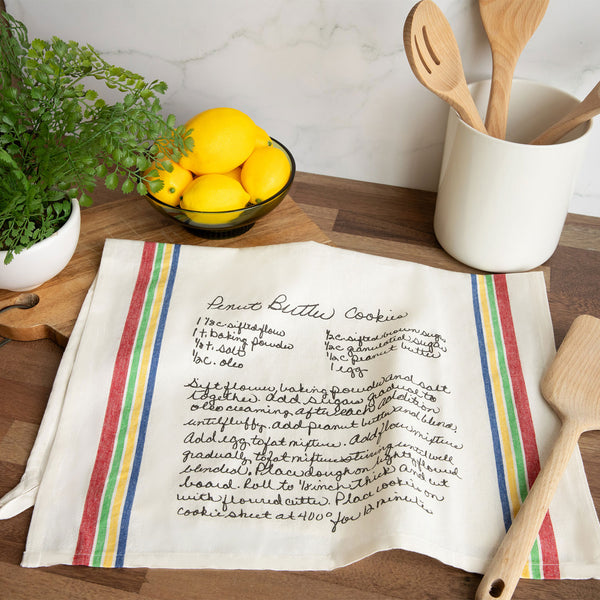 Penut Butter Cookies
1 1/2 c sifted flour
1 t. baking powder
1/2 t. salt
1/2 c. oleo
1/2 c sifted brown sugar
1/2 c granulated sugar
1/2 c peanut butter
1 egg
Sift flour, baking powder and salt
together. Add sugar gradual to
oleo creaming after each addition
until fluffy. Add peanut butter and blend,
Add egg to fat mixture. Add flour mixture
gradually to fat mixture stirring until well
blended. Place dough on lightly floured
board. Roll to 1/8 inch thick and cut
with floured cutter. Place cookies on
cookie sheet at 400° for 12 minutes